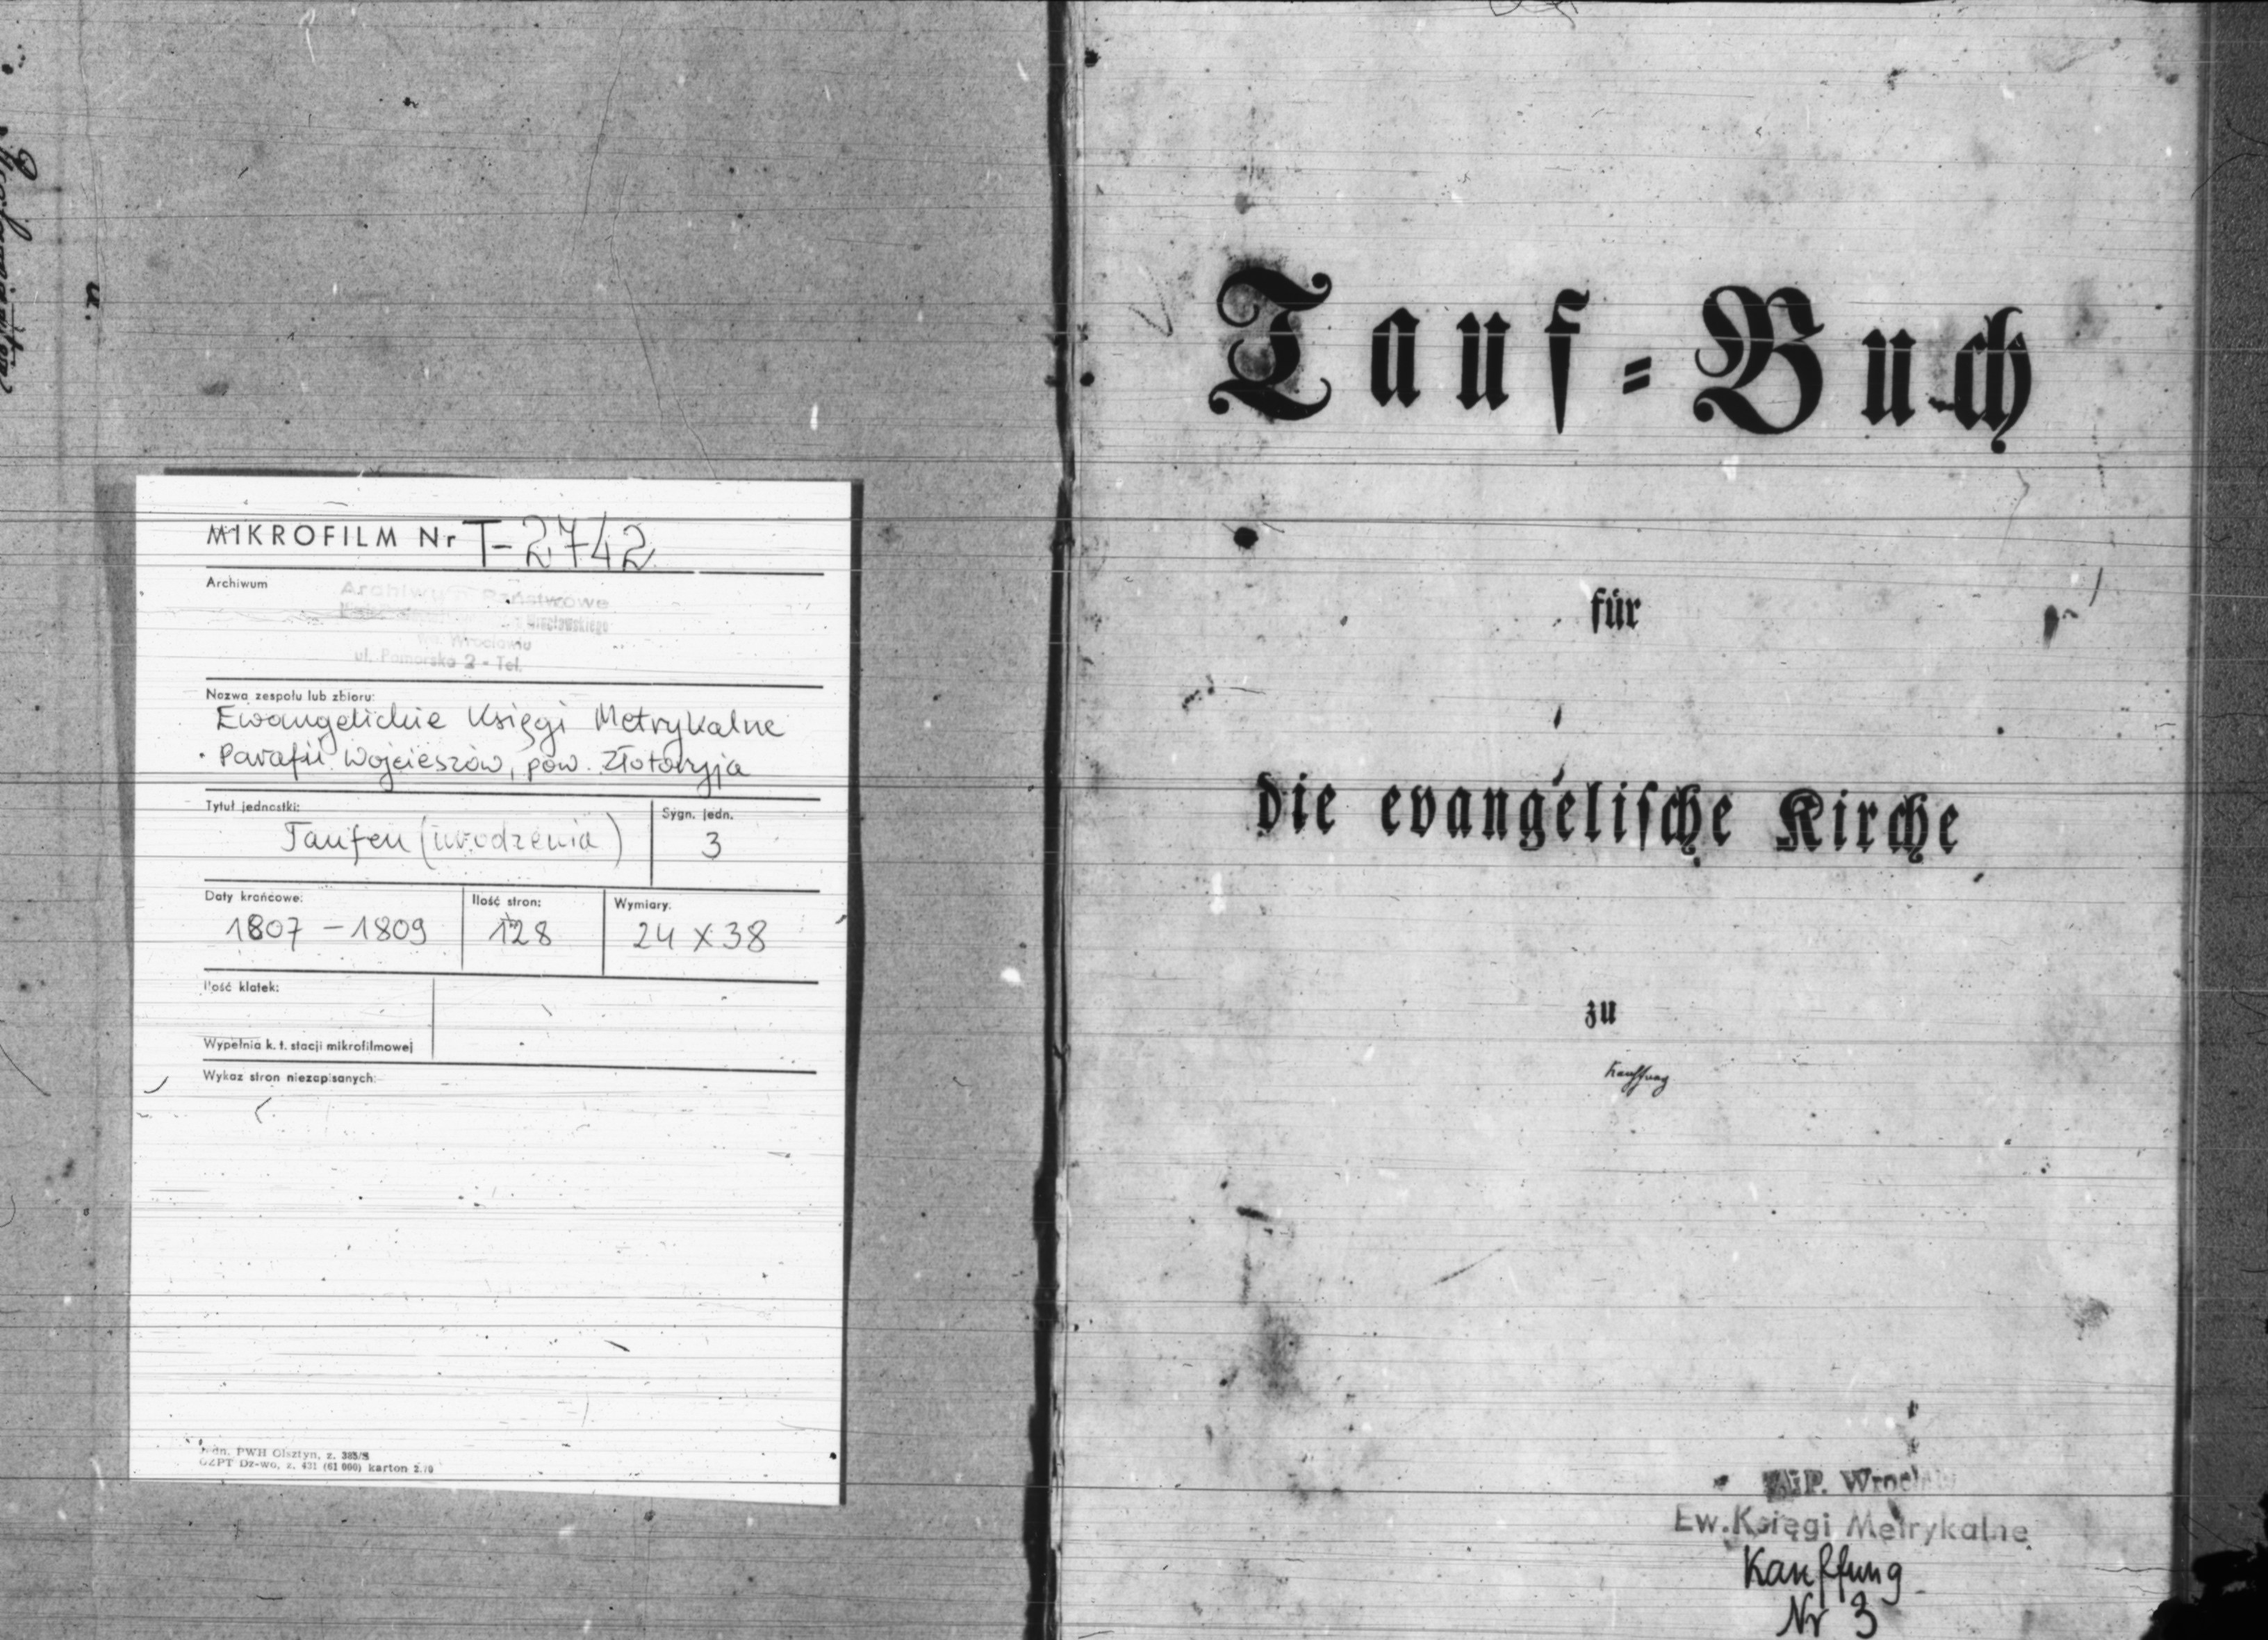 MIKROFILM Nr T-2742
Archiwum
Archiwum Państwowe
Wrocławskiego
we Wrocławiu
ul. Pomorska 2 - Tel.
Nazwa zespołu lub zbioru:
Ewangelickie Księgi Metrykalne
Parafii Wojcieszów, pow. Złotoryja
Tytuł jednostki:
Taufen (urodzenia)
Sygn. jedn.
3
Daty krańcowe:
1807 - 1809
Ilość stron:
128
Wymiary:
24 x 38
Ilość klatek:
Wypełnia k. t. stacji mikrofilmowej
Wykaz stron niezapisanych:
PWH Olsztyn, z. 385/S
OZPT Dz-wo, z. 431 (61 000) karton
u.
Tauf-Buch
für
die evangelische Kirche
zu
Kauffung
Ew. Księgi Metrykalne
Kauffung
Nr 3